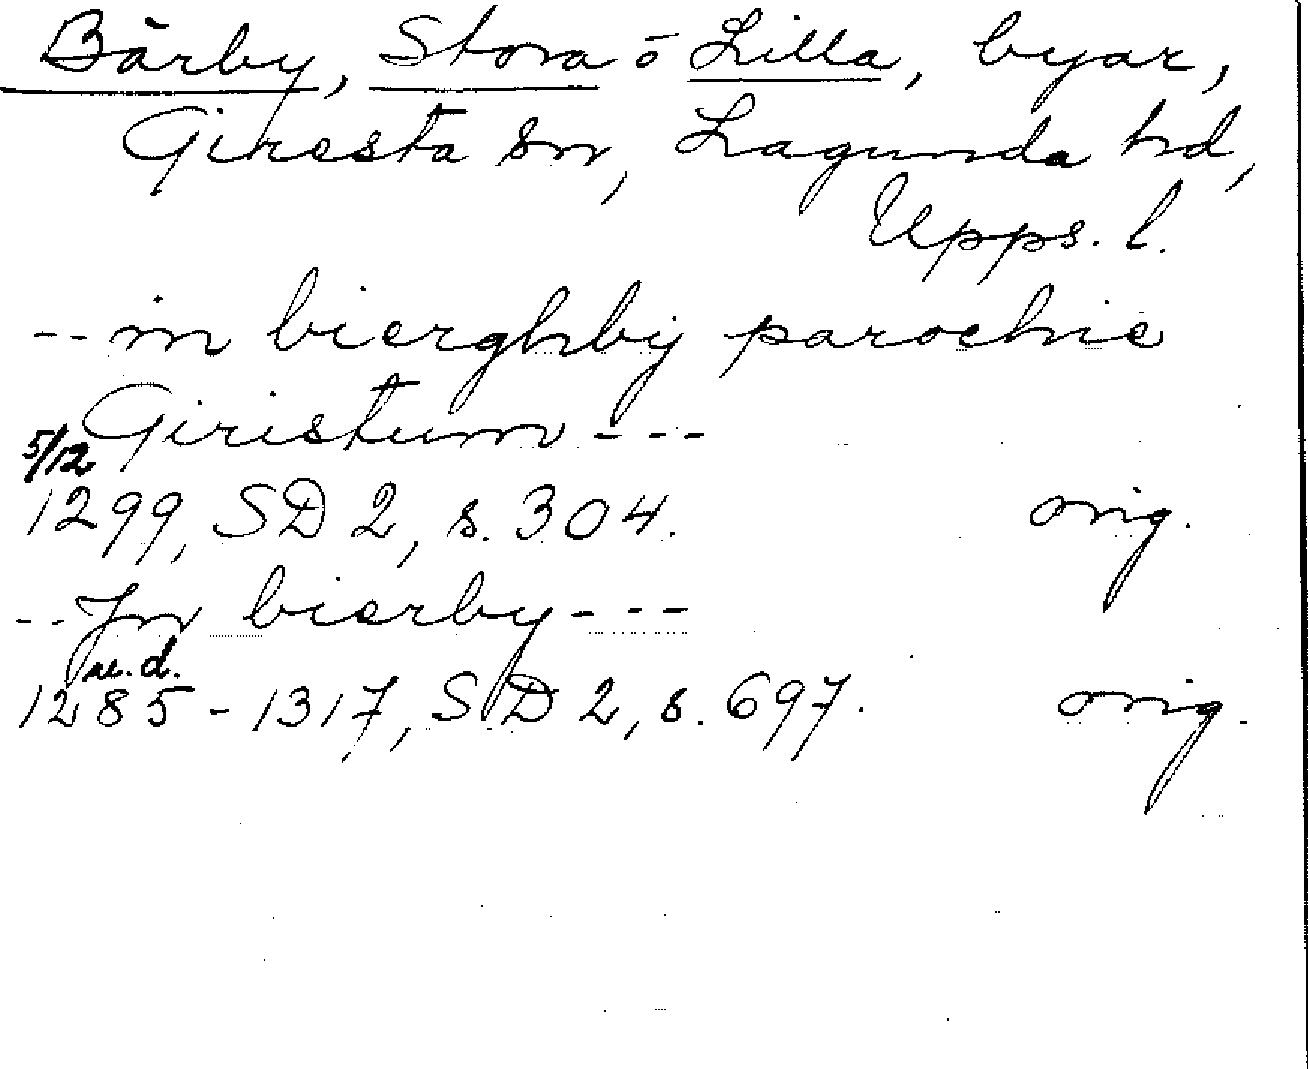 Bärby, Stora o Lilla, byar,
Giresta sn, Lagunda hd,
Upps. l.
-- in bierghby parochie
Giristum ---
5/12
1299, SD 2, s. 304. orig.
-- Jn bierby ---
u.d.
1285-1317, SD 2, s. 697. orig.